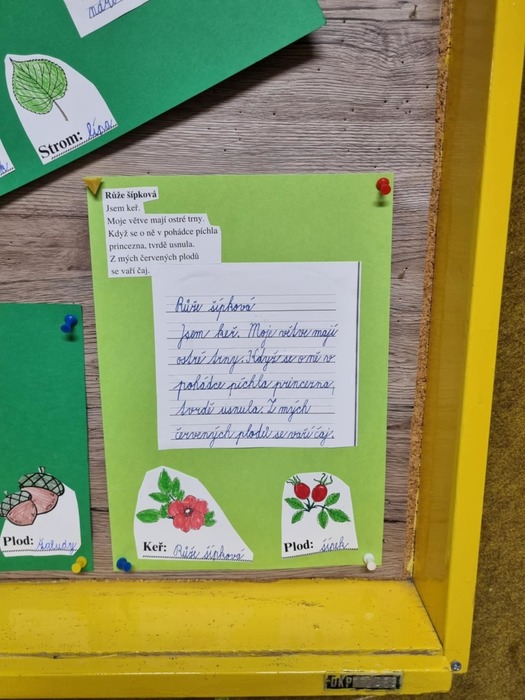 Strom: lípa
Růže šípková
Jsem keř.
Moje větve mají ostré trny.
Když se o ně v pohádce píchla
princezna, tvrdě usnula.
Z mých červených plodů
se vaří čaj.
Růže šípková
Jsem keř. Moje větve mají
ostré trny. Když se o ně v
pohádce píchla princezna,
tvrdě usnula. Z mých
červených plodů se vaří čaj.
Plod: žaludy
Keř: Růže šípková
Plod: šípek